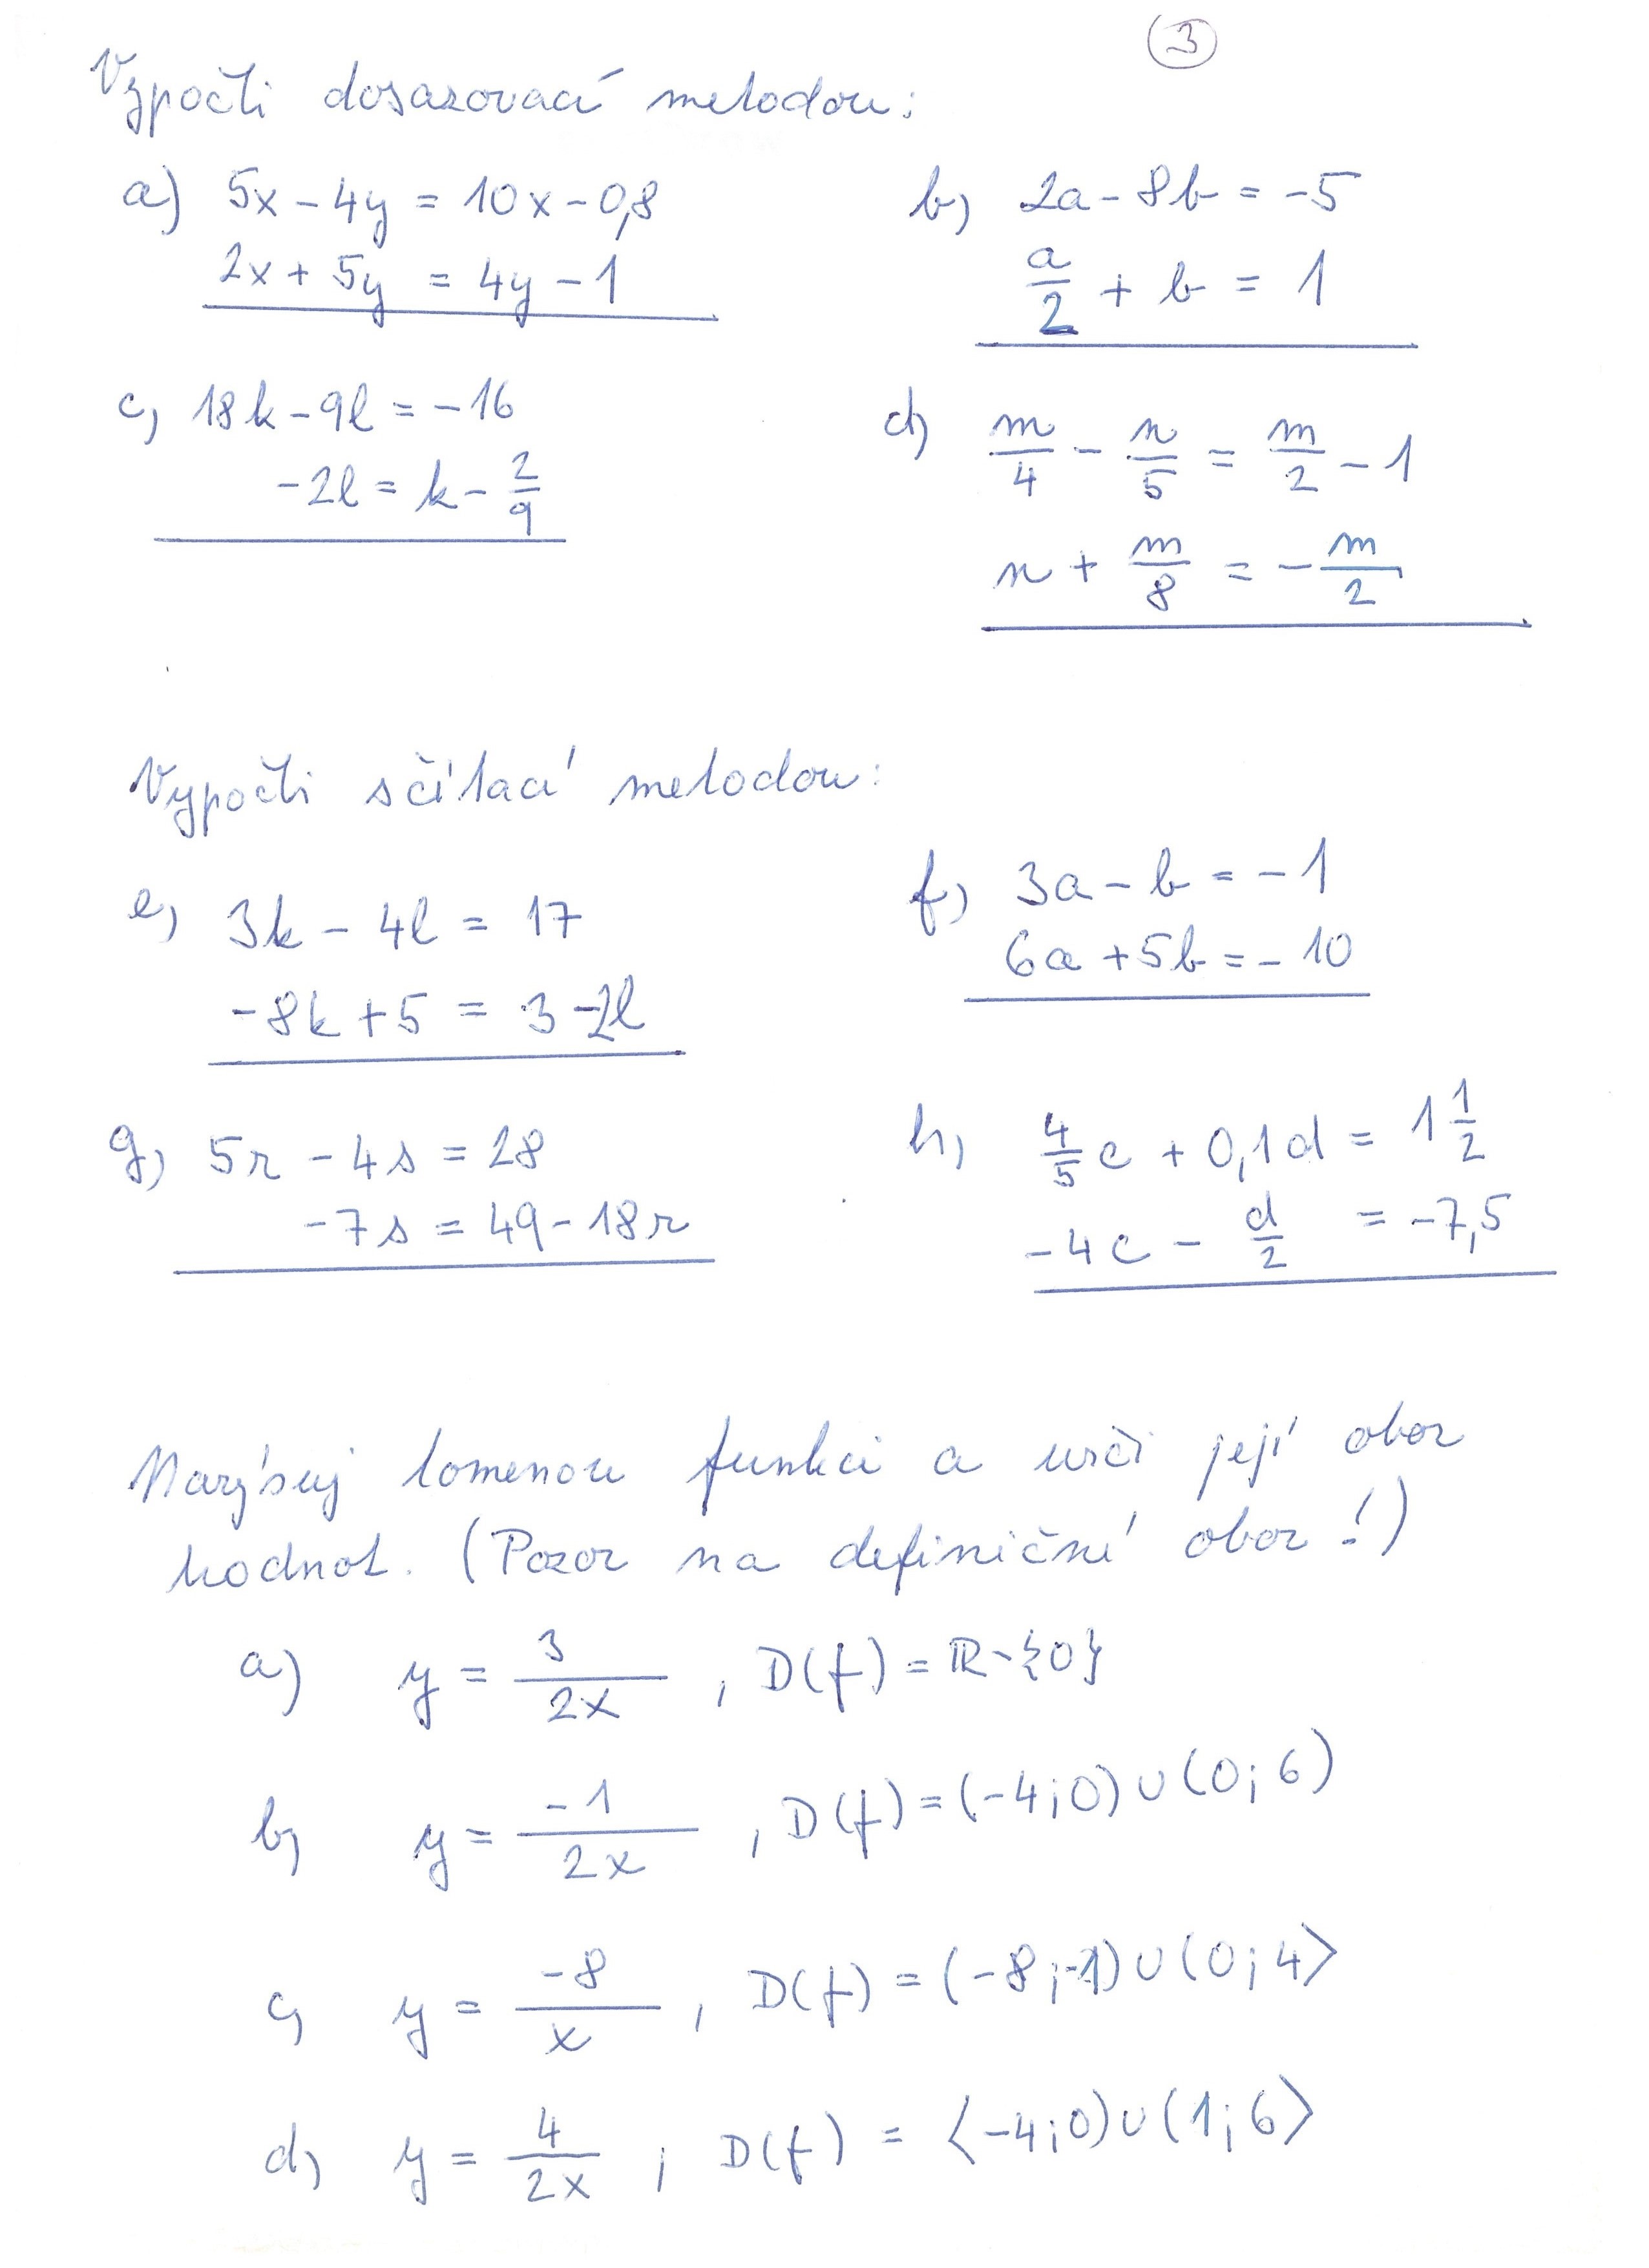 3
Vypočti dosazovací metodou:
a) 5x - 4y = 10x - 0,8
2x + 5y = 4y - 1
b) 2a - 8b = -5
a/2 + b = 1
c) 18k - 9l = -16
-2l = k - 2/9
d) m/4 - n/5 = m/2 - 1
n + m/8 = - m/2
Vypočti sčítací metodou:
e) 3k - 4l = 17
-8k + 5 = 3 - 2l
f) 3a - b = -1
6a + 5b = -10
g) 5r - 4s = 28
-7s = 49 - 18r
h) 4/5 c + 0,1d = 1 1/2
-4c - d/2 = -7,5
Narýsuj lomenou funkci a urči její obor
hodnot. (Pozor na definiční obor!)
a) y = 3/2x , D(f) = ℝ - {0}
b) y = -1/2x , D(f) = (-4;0) ∪ (0;6)
c) y = -8/x , D(f) = (-8;-1) ∪ (0;4⟩
d) y = 4/2x ; D(f) = ⟨-4;0) ∪ (1;6⟩